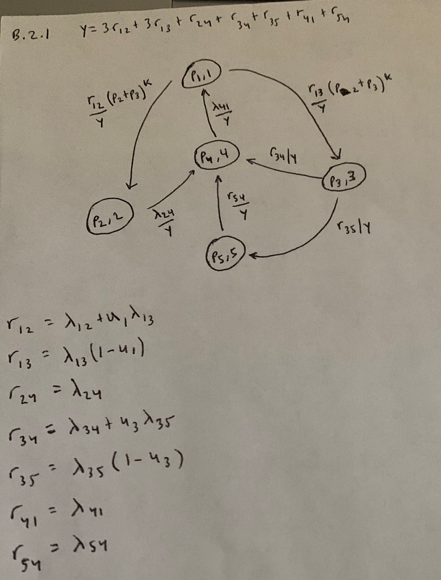 B.2.1 γ = 3r₁₂ + 3r₁₃ + r₂₄ + r₃₄ + r₃₅ + r₄₁ + r₅₄
P₁,1
r₁₂/γ (P₂+P₃)^K
r₁₃/γ (P₂+P₃)^K
λ₄₁/γ
P₄,4
r₃₄/γ
P₃,3
P₂,2
λ₂₄/γ
r₅₄/γ
r₃₅/γ
P₅,5
r₁₂ = λ₁₂ + u₁λ₁₃
r₁₃ = λ₁₃(1-u₁)
r₂₄ = λ₂₄
r₃₄ = λ₃₄ + u₃λ₃₅
r₃₅ = λ₃₅(1-u₃)
r₄₁ = λ₄₁
r₅₄ = λ₅₄